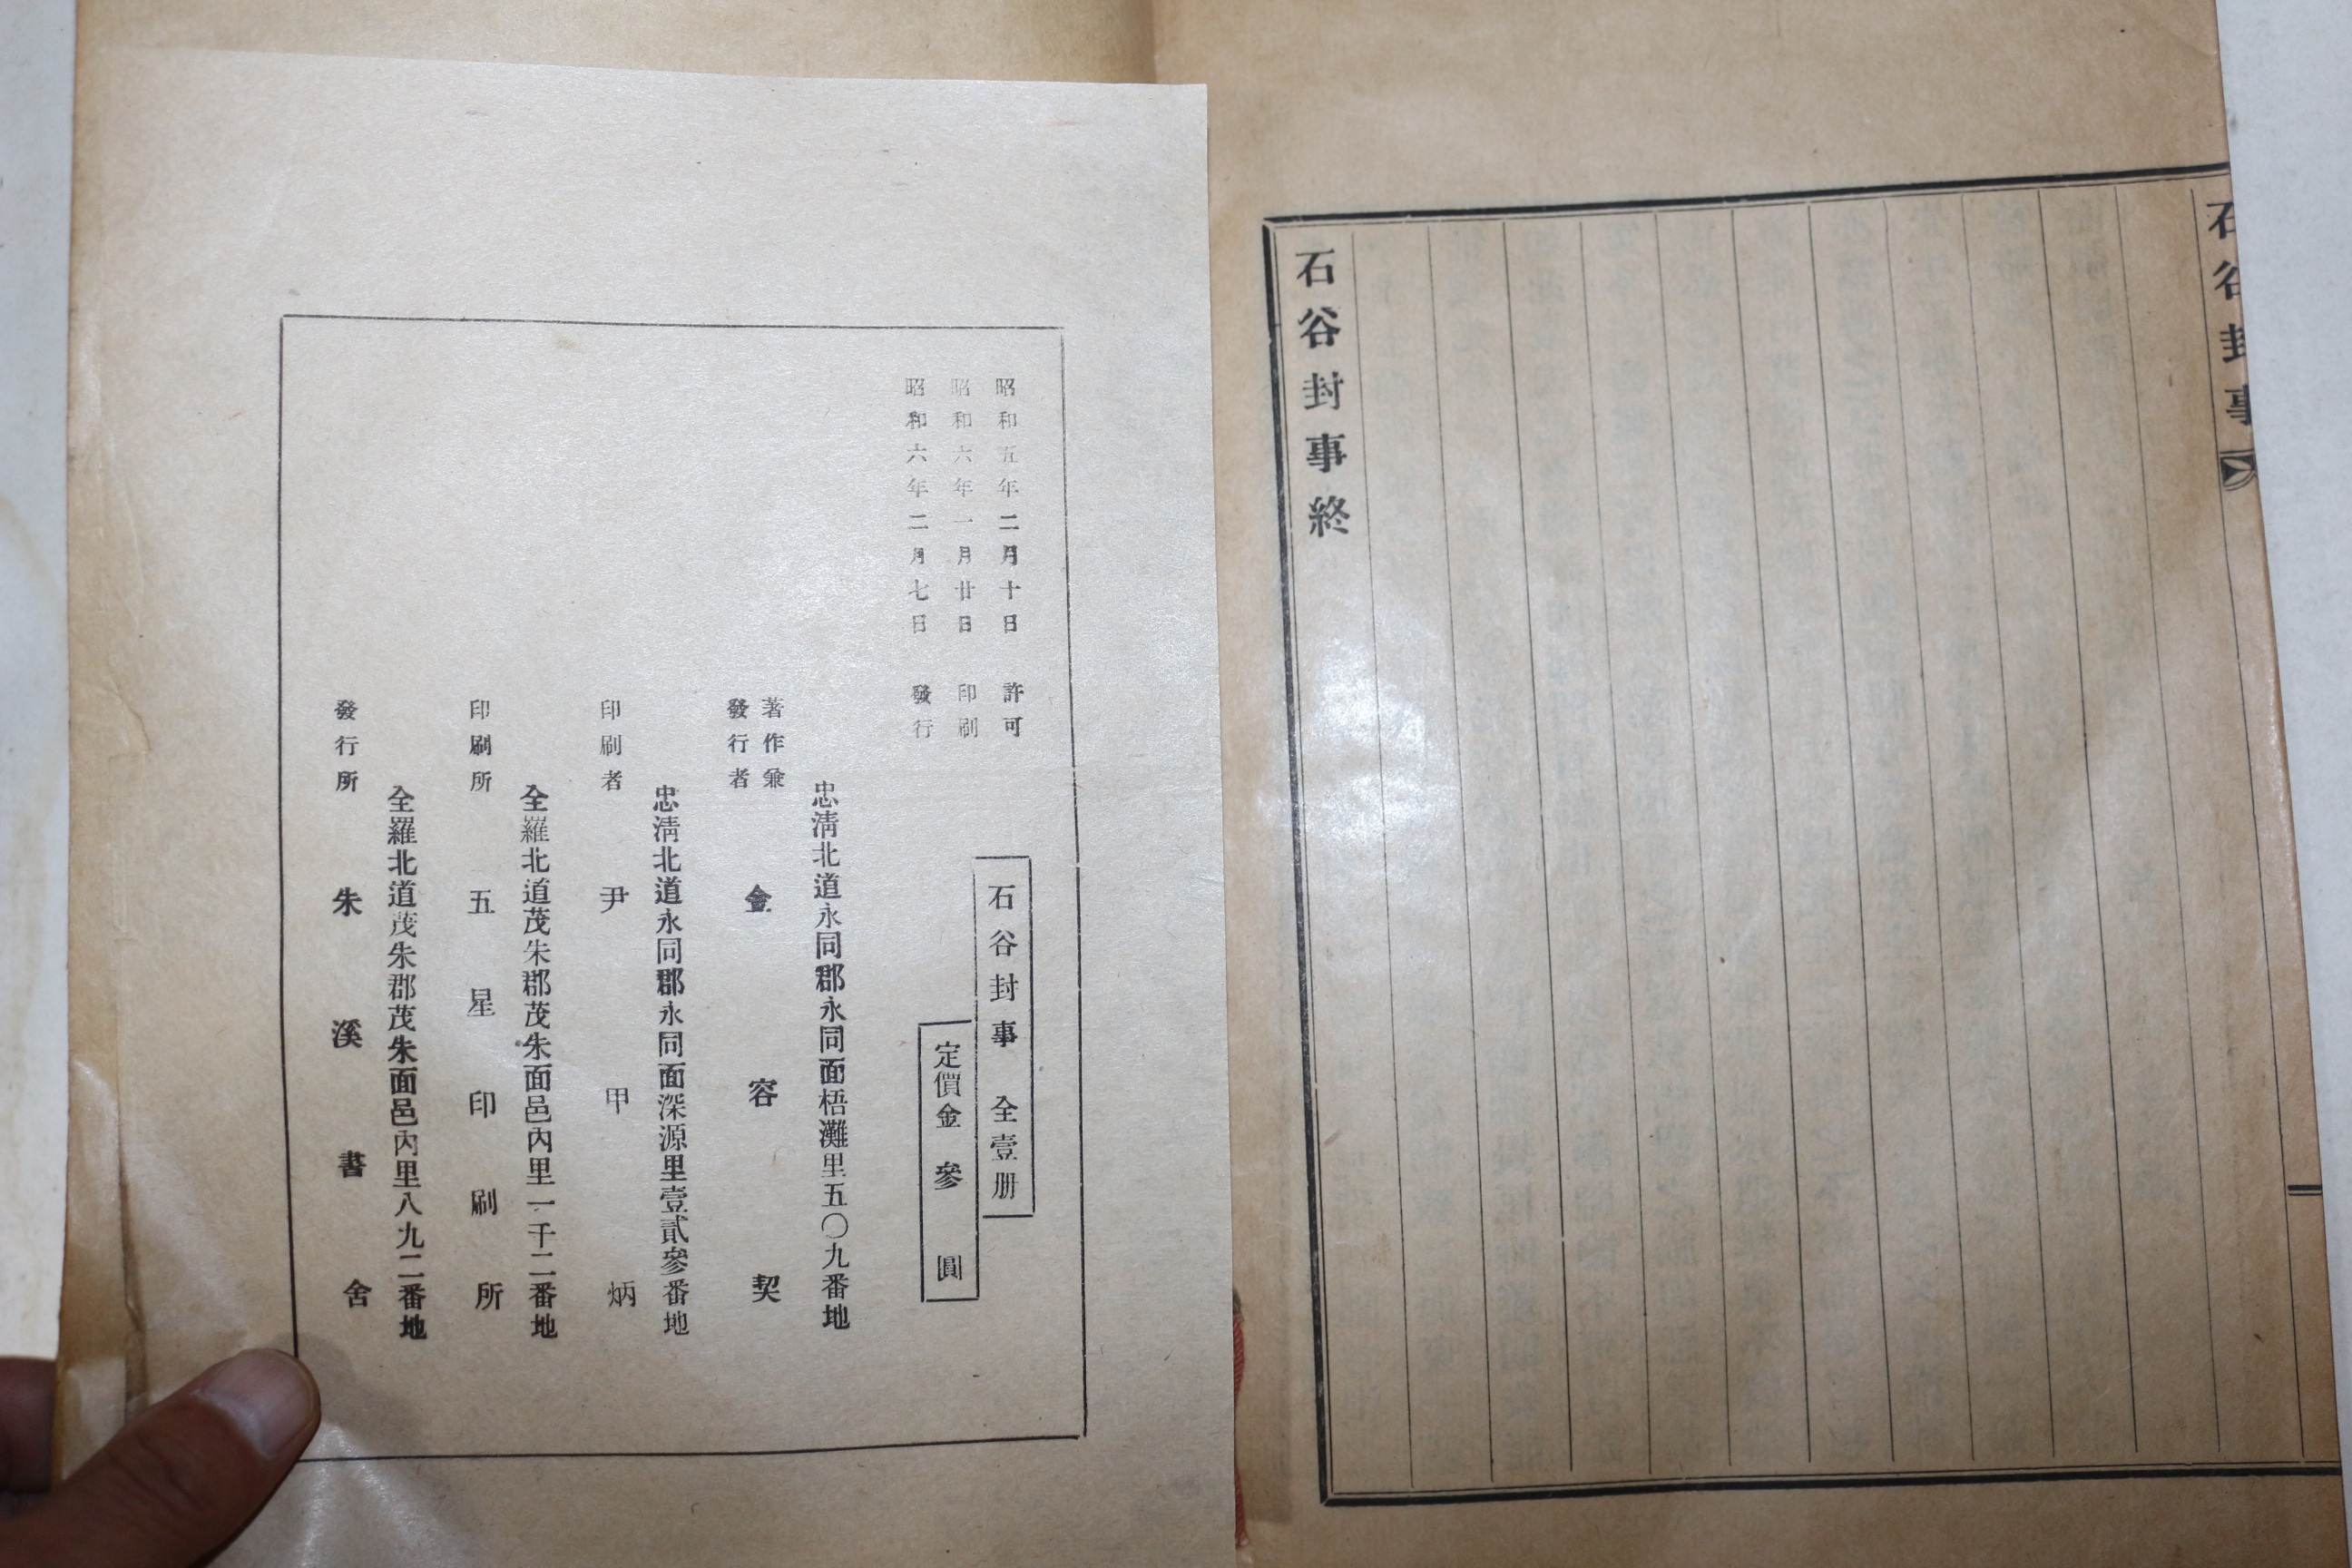 石谷封事
石谷封事終
昭和五年二月十日 許可
昭和六年一月廿日 印刷
昭和六年二月七日 發行
石谷封事 全壹册
定價金 參 圓
忠淸北道永同郡永同面梧灘里五〇九番地
著作兼
發行者
金容契
忠淸北道永同郡永同面深源里壹貳參番地
印刷者 尹甲炳
全羅北道茂朱郡茂朱面邑內里一千二番地
印刷所 五星印刷所
全羅北道茂朱郡茂朱面邑內里八九二番地
發行所 朱溪書舍